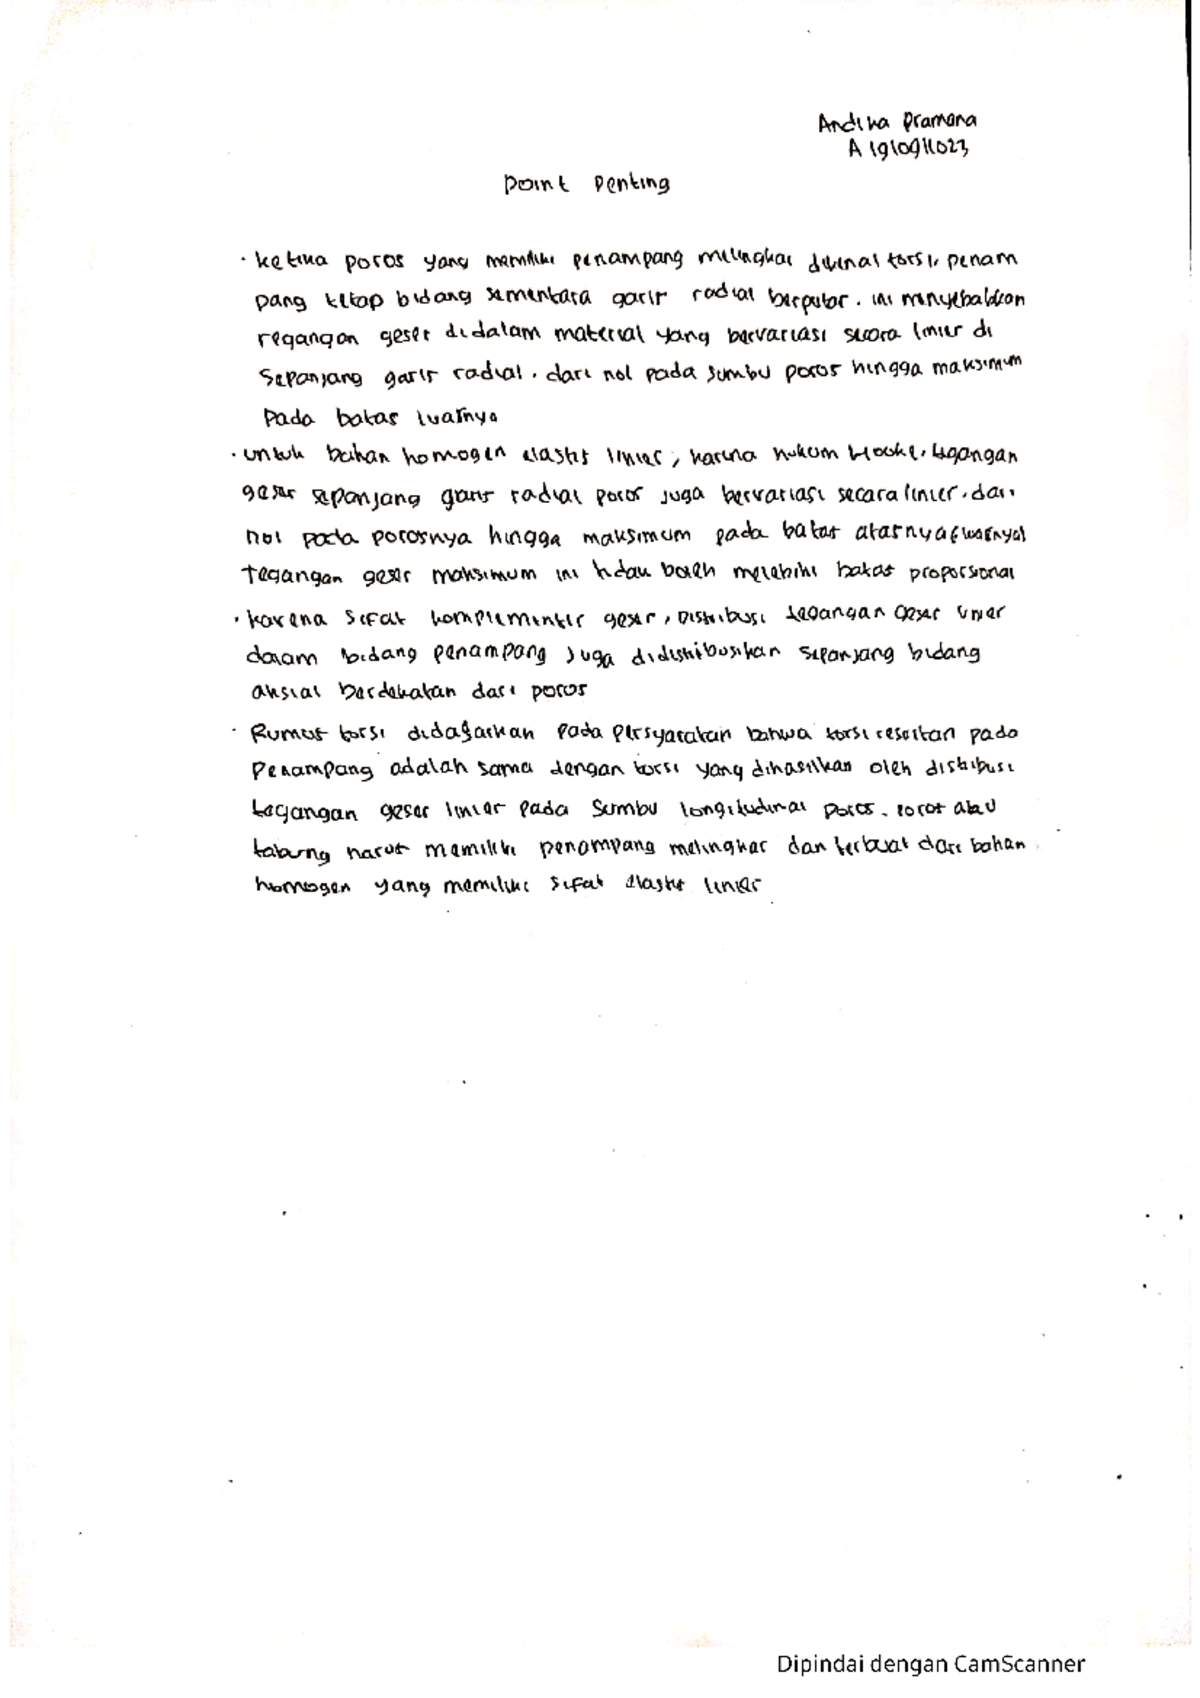 Andika Pramana
A 1910911023
Point Penting
· ketika poros yang memiliki penampang melingkar dikenai torsi, penam
pang tetap bidang sementara garis radial berputar. ini menyebabkan
regangan geser didalam material yang bervariasi secara linier di
Sepanjang garis radial. dari nol pada sumbu poros hingga maksimum
Pada batas luarnya
· untuk bahan homogen elastis linier, karena hukum Hooke, tegangan
geser sepanjang garis radial poros juga bervariasi secara linier. dari
nol pada porosnya hingga maksimum pada batas
Tegangan geser maksimum ini tidak boleh melebihi batas proporsional
· karena sifat komplementer geser, Distribusi tegangan geser linier
dalam bidang penampang juga didistribusikan sepanjang bidang
aksial berdekatan dari poros
· Rumus torsi didasarkan pada persyaratan bahwa torsi resultan pada
Penampang adalah sama dengan torsi yang dihasilkan oleh distribusi
tegangan geser linier pada sumbu longitudinal poros. poros atau
tabung harus memiliki penampang melingkar dan terbuat dari bahan
homogen yang memiliki sifat elastis linier
Dipindai dengan CamScanner